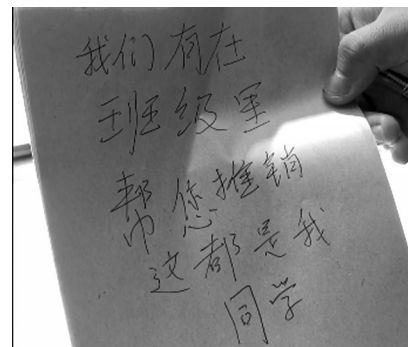 我们有在
班级里
帮您推销
这都是我
同学